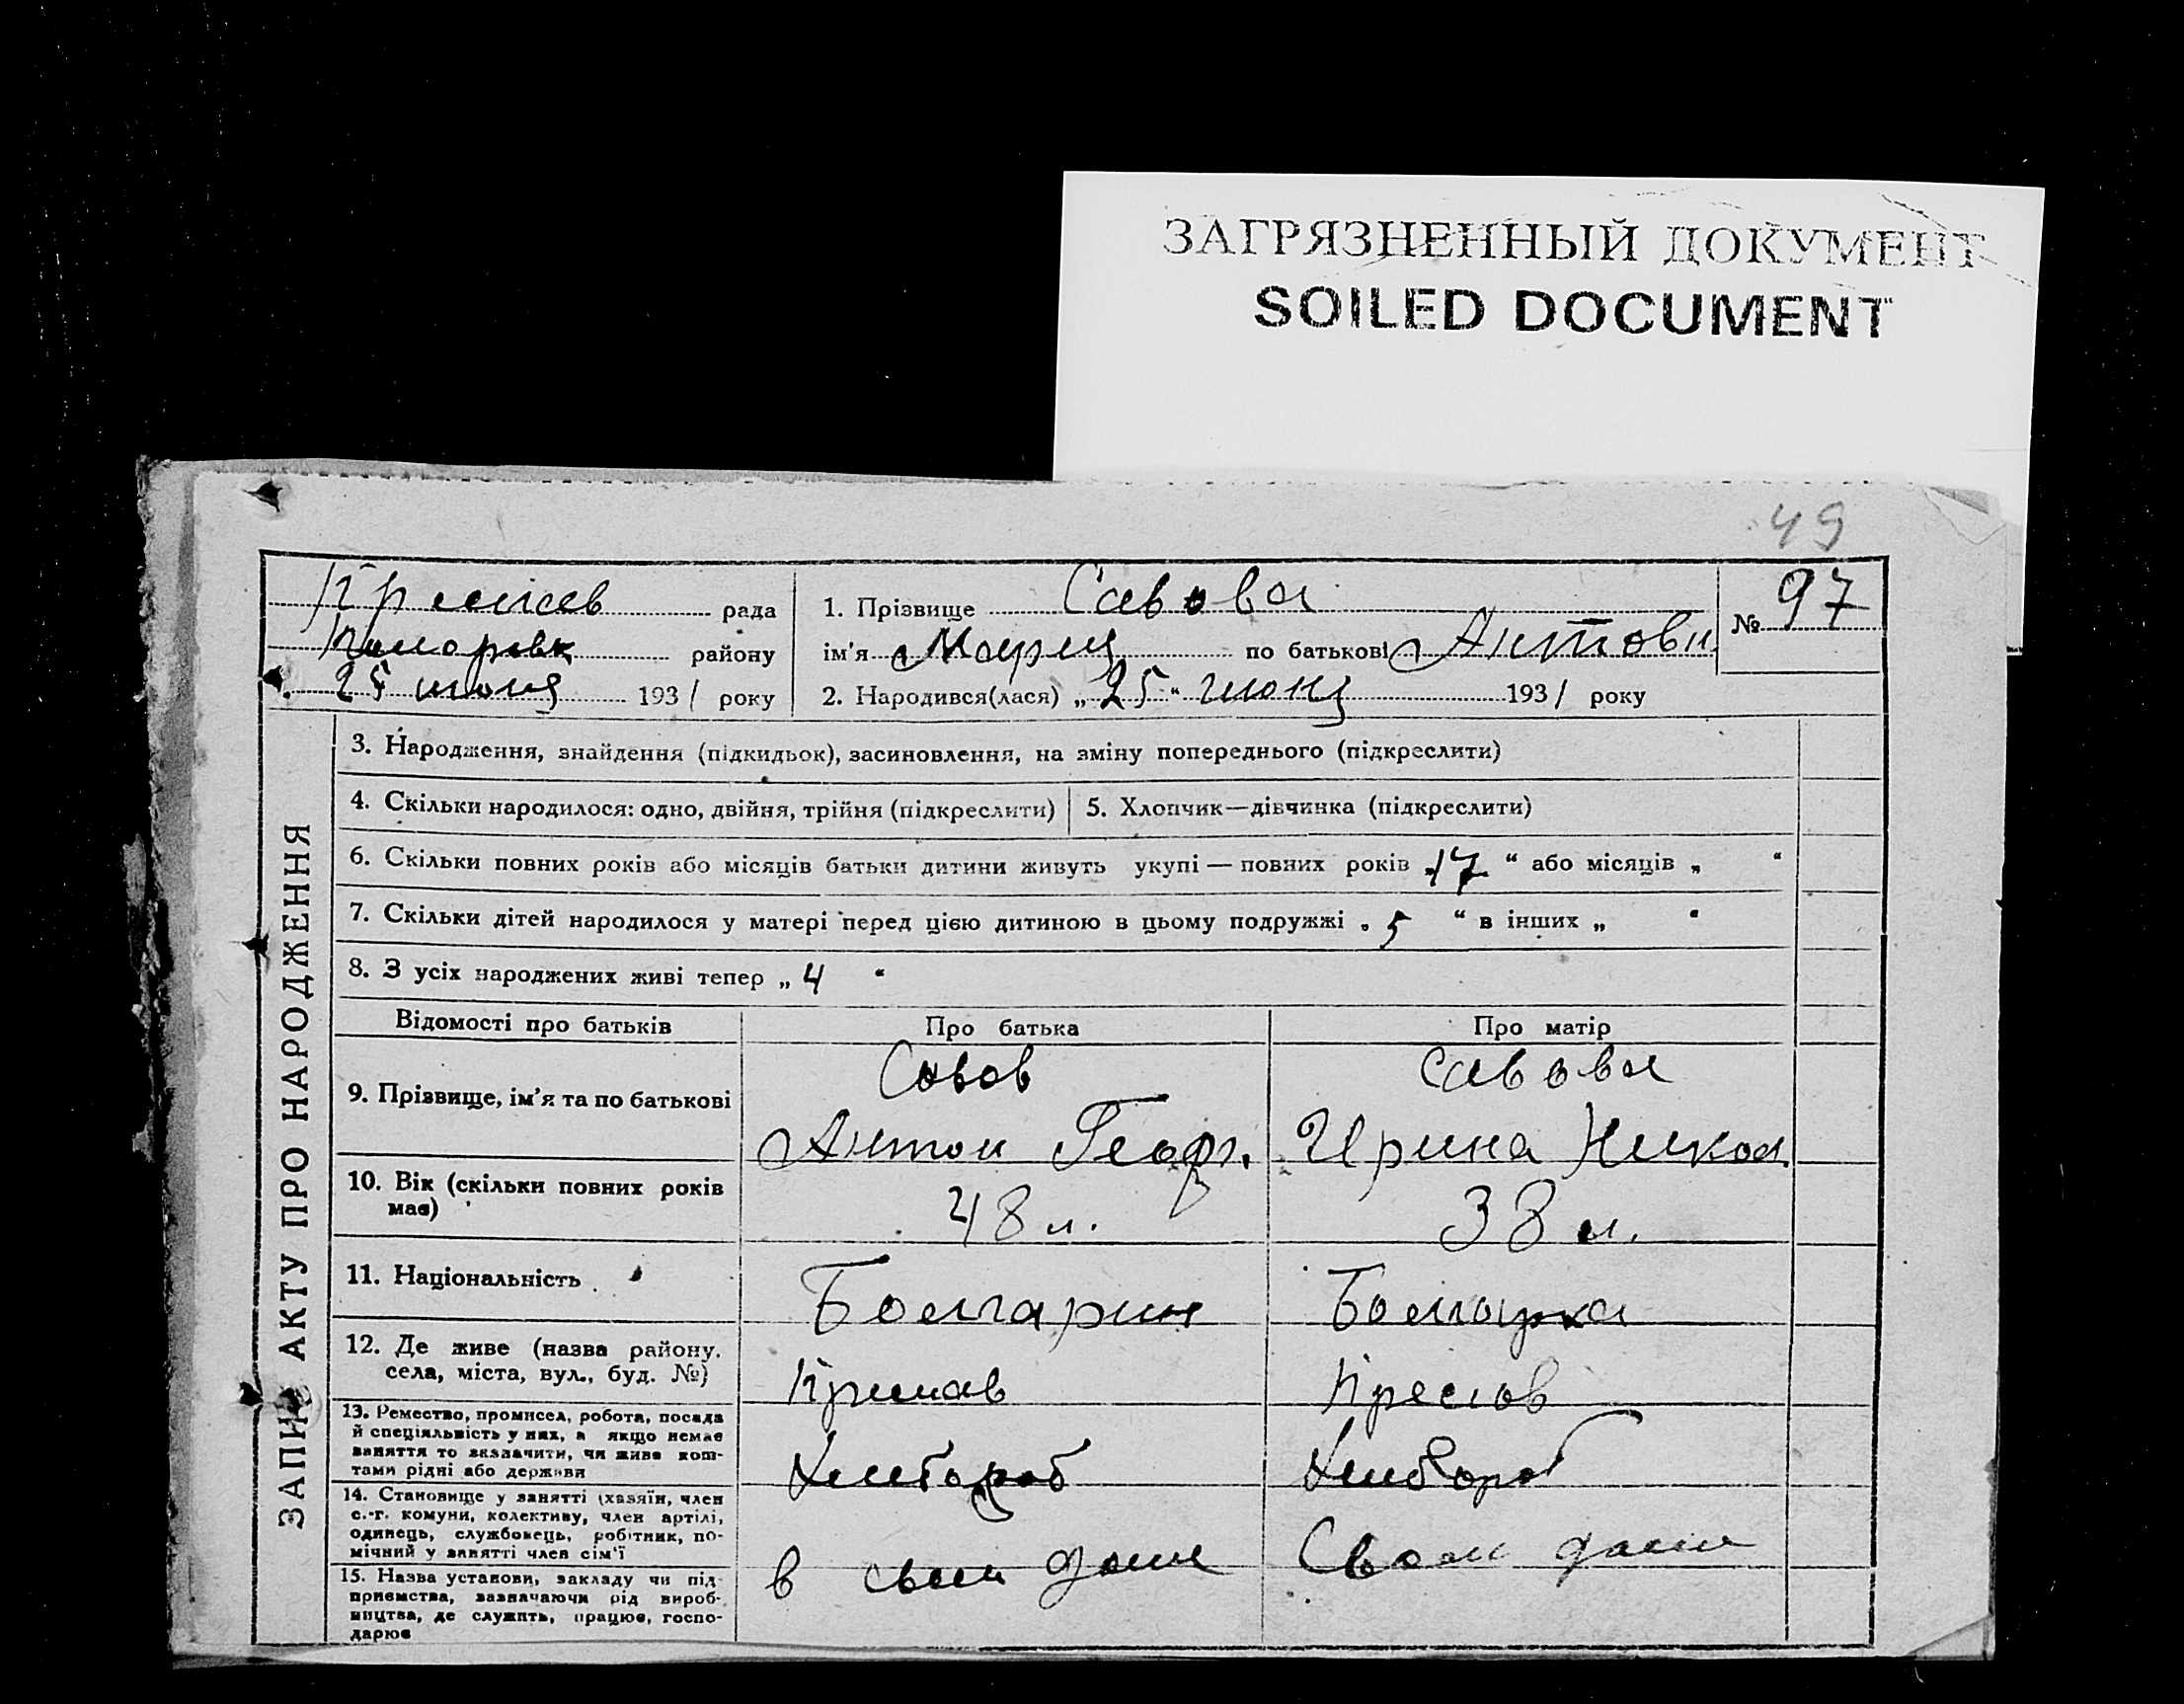 ЗАГРЯЗНЕННЫЙ ДОКУМЕНТ
SOILED DOCUMENT
49
рада
району
25 июня 1931 року
1. Прізвище Савова
ім'я Мария по батькові Антовн.
2. Народився(лася) „25" июня 1931 року
№ 97
ЗАПИС АКТУ ПРО НАРОДЖЕННЯ
3. Народження, знайдення (підкидьок), засиновлення, на зміну попереднього (підкреслити)
4. Скільки народилося: одно, двійня, трійня (підкреслити)
5. Хлопчик—дівчинка (підкреслити)
6. Скільки повних років або місяців батьки дитини живуть укупі — повних років „17" або місяців „ "
7. Скільки дітей народилося у матері перед цією дитиною в цьому подружжі „5" в інших „ "
8. З усіх народжених живі тепер „4"
Відомості про батьків
Про батька
Про матір
9. Прізвище, ім'я та по батькові
Савов
Антон Георг.
Савова
Ирина Никол.
10. Вік (скільки повних років
має)
48 л.
38 л.
11. Національність
Болгарин
Болгарка
12. Де живе (назва району,
села, міста, вул., буд. №)
13. Ремество, промисел, робота, посада
й спеціяльність у них, а якщо немає
заняття то зазначити, чи живе кош-
тами рідні або держави
Хлебороб
Хлебороб
14. Становище у занятті (хазяїн, член
с.-г. комуни, колективу, член артілі,
одинець, службовець, робітник, по-
мічний у занятті член сім'ї
15. Назва установи, закладу чи під-
приємства, зазначаючи рід вироб-
ництва, де служить, працює, госпо-
дарює
в своем доме
Своем доме